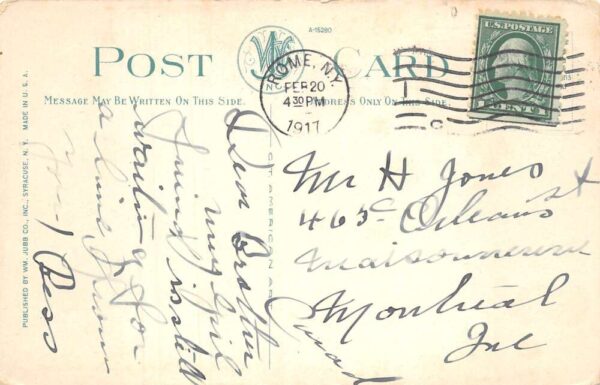 A-15280
POST CARD
ROME, N.Y.
FEB 20
4 30 PM
1917
U.S. POSTAGE
MESSAGE MAY BE WRITTEN ON THIS SIDE.
ADDRESS ONLY ON THIS SIDE.
PUBLISHED BY WM. JUBB CO., INC., SYRACUSE, N. Y. MADE IN U. S. A.
Dear Brother
my Girl
friend is still
waiting for
a line from
you
Bess
Mr H Jones
Orleans St
Maisonneuve
Montreal
Canada